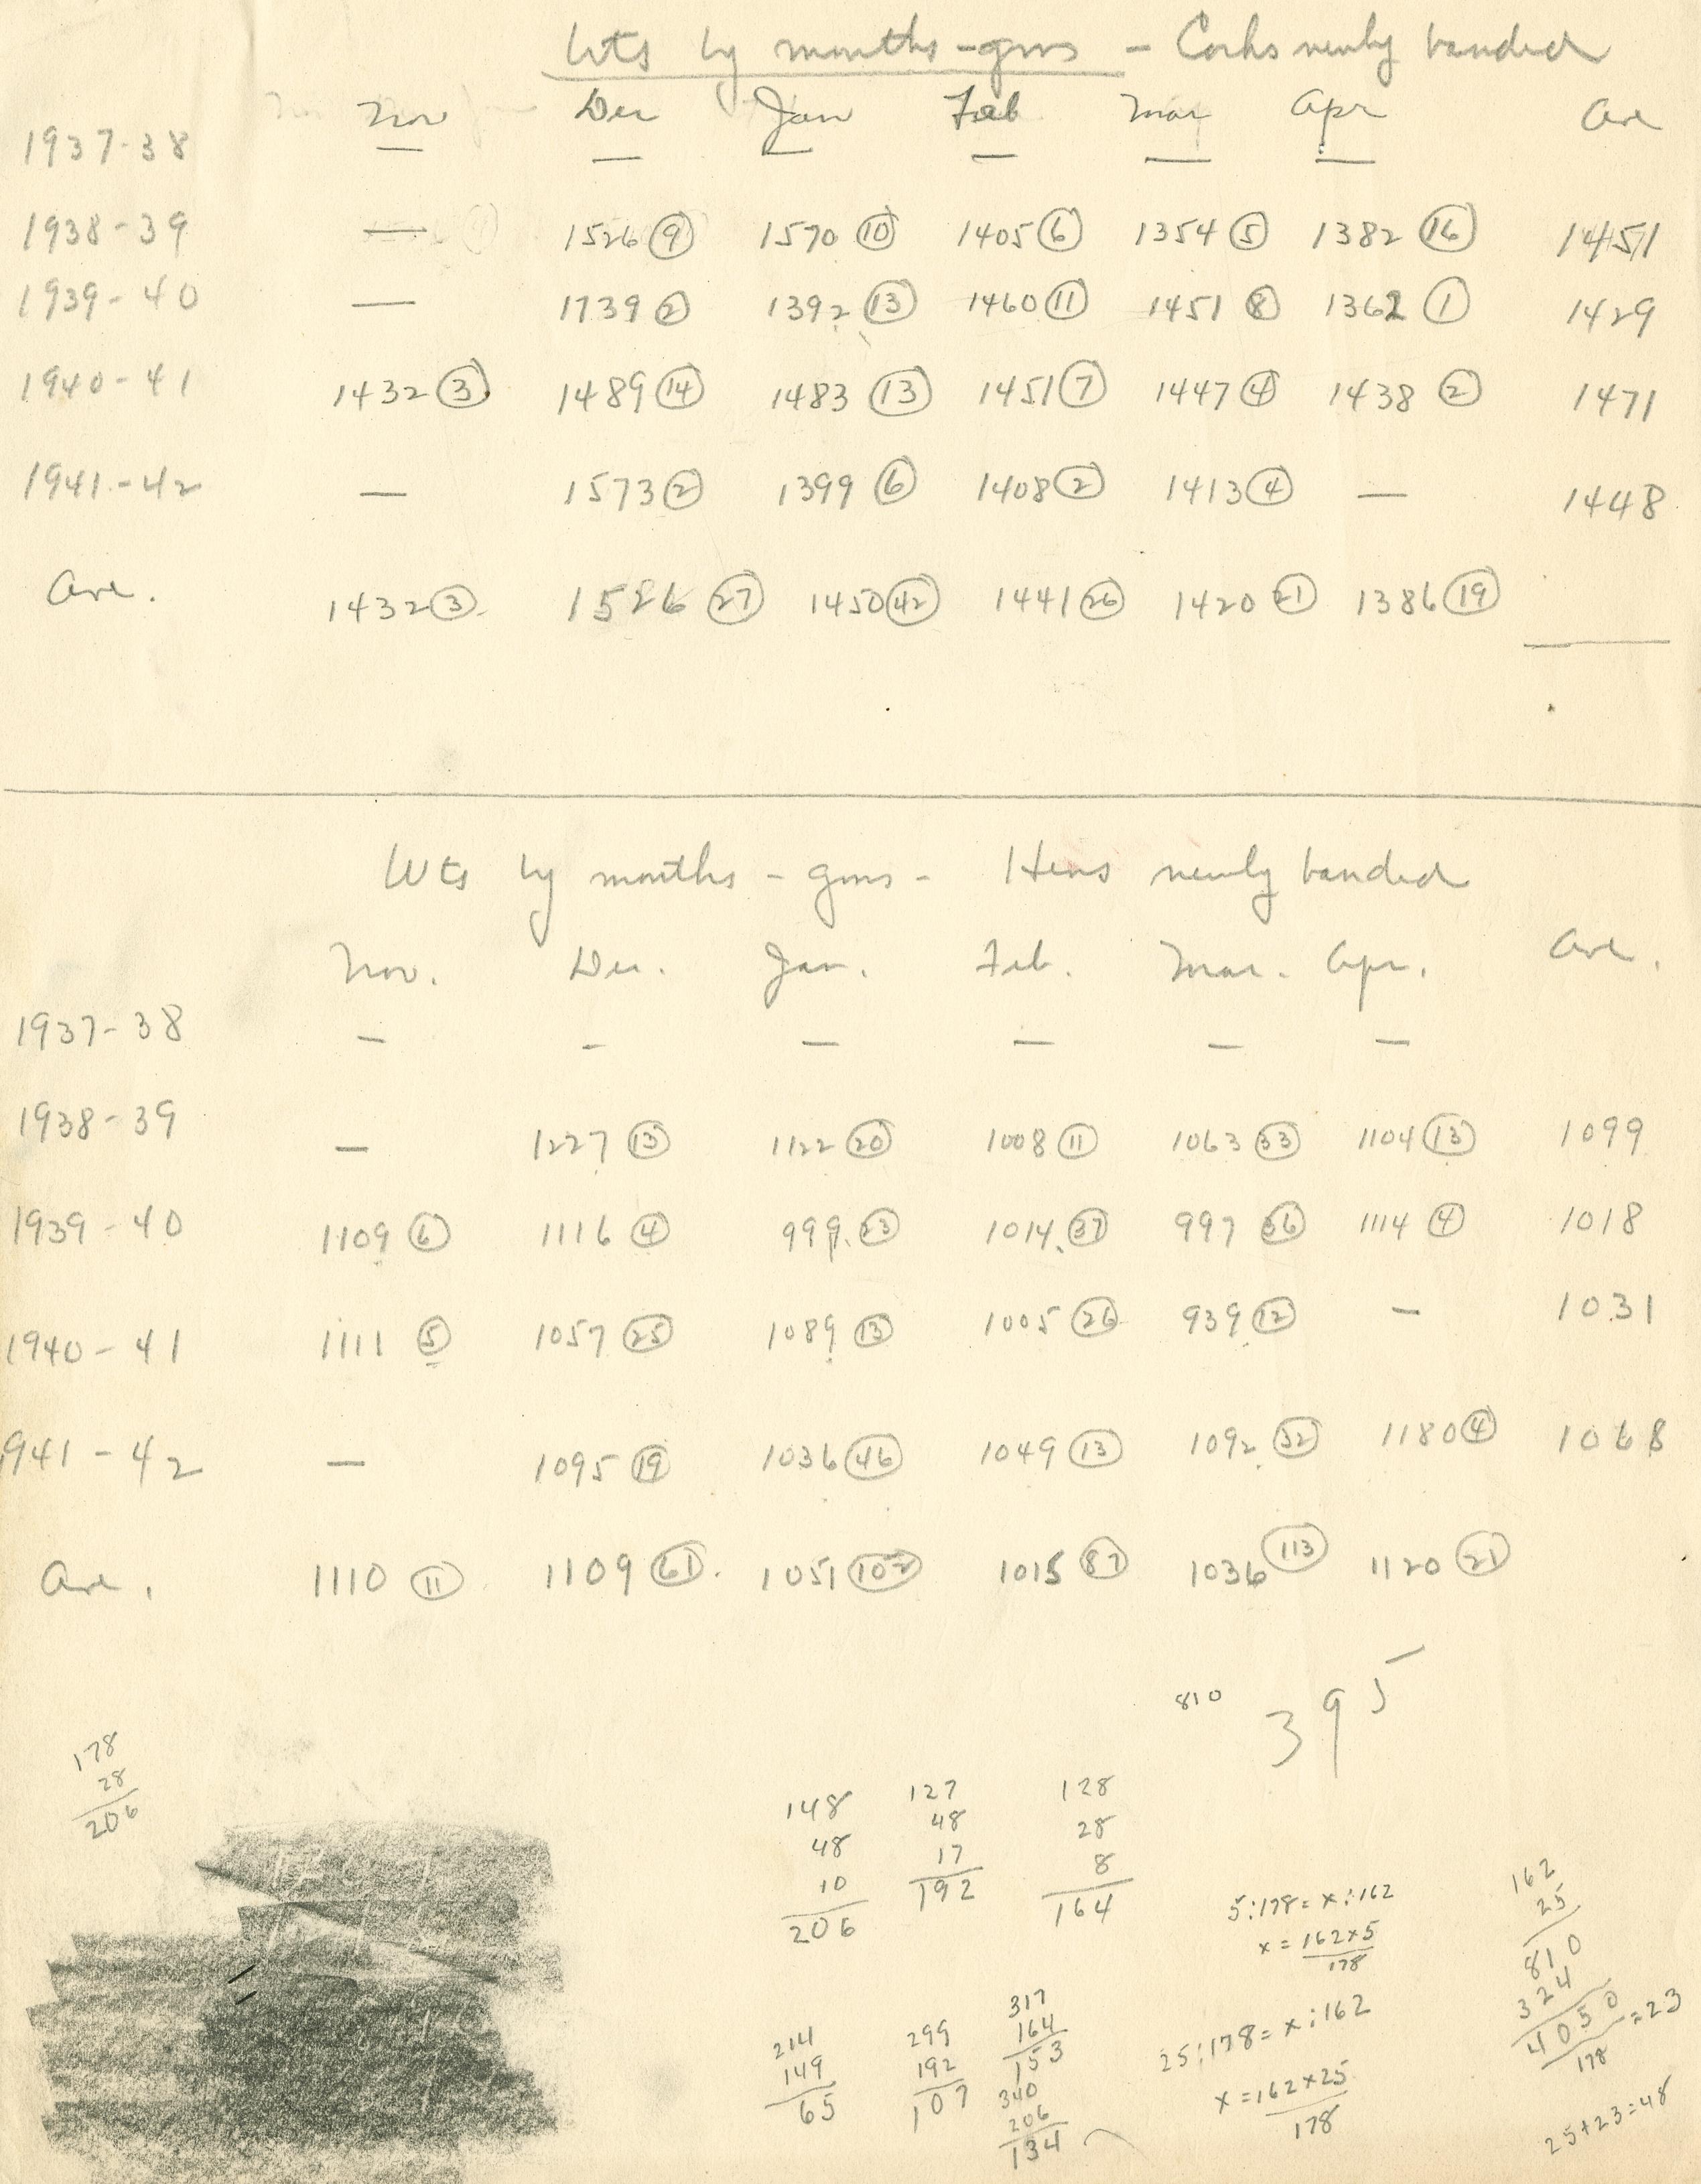 Wts by months - gms - Cocks newly banded
Nov Dec Jan Feb Mar Apr Ave
1937-38 — — — — — —
1938-39 — 1526 (9) 1570 (10) 1405 (6) 1354 (5) 1382 (16) 1451
1939-40 — 1739 (2) 1392 (13) 1460 (11) 1451 (8) 1362 (1) 1429
1940-41 1432 (3) 1489 (14) 1483 (13) 1451 (7) 1447 (4) 1438 (2) 1471
1941-42 — 1573 (2) 1399 (6) 1408 (2) 1413 (4) — 1448
Ave. 1432 (3) 1526 (27) 1450 (42) 1441 (26) 1420 (21) 1386 (19)
Wts by months - gms - Hens newly banded
Nov. Dec. Jan. Feb. Mar. Apr. Ave.
1937-38 — — — — — —
1938-39 — 1227 (13) 1122 (20) 1008 (11) 1063 (33) 1104 (13) 1099
1939-40 1109 (6) 1116 (4) 999 (23) 1014 (37) 997 (36) 1114 (4) 1018
1940-41 1111 (5) 1057 (25) 1089 (13) 1005 (26) 939 (12) — 1031
1941-42 — 1095 (19) 1036 (46) 1049 (13) 1092 (32) 1180 (4) 1068
Ave. 1110 (11) 1109 (61) 1051 (102) 1015 (87) 1036 (113) 1120 (21)
810 395
178
28
206
148
48
10
206
127
48
17
192
128
28
8
164
5:178 = x:162
x = 162x5
178
162
25
810
324
4050 = 23
178
214
149
65
299
192
107
317
164
153
340
206
134
25:178 = x:162
x = 162x25
178
25+23=48